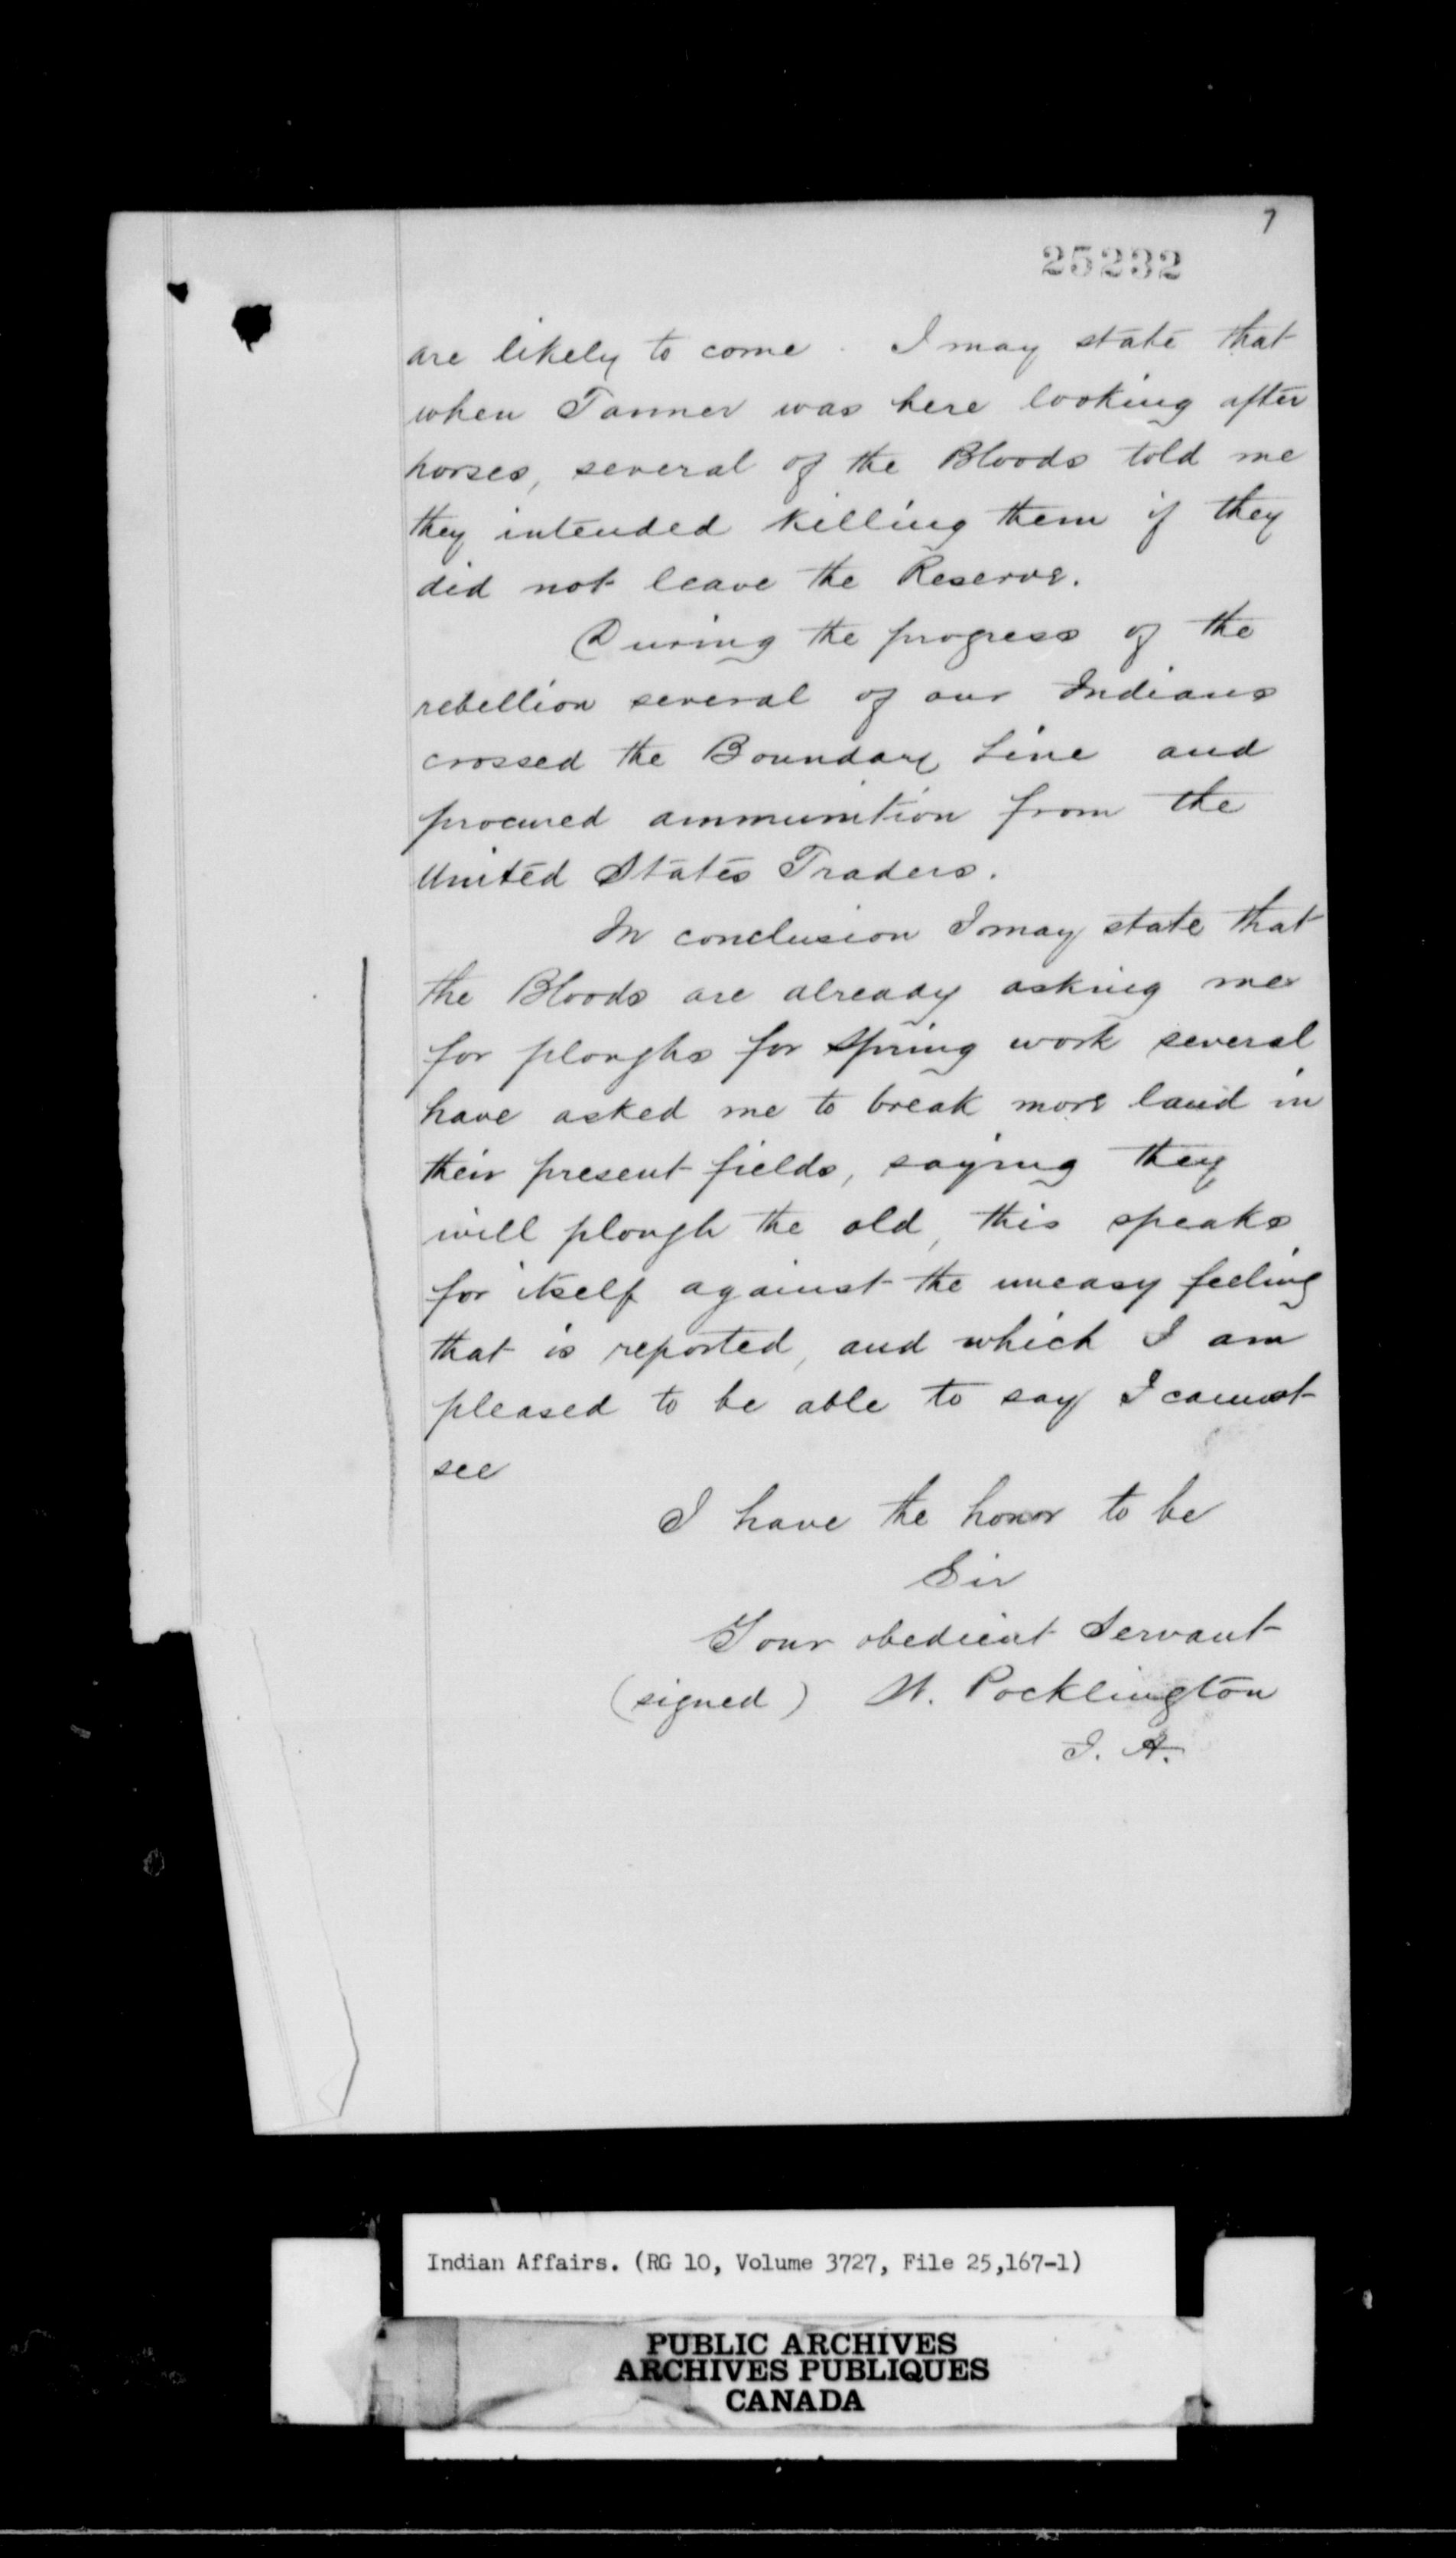 7
25232
are likely to come. I may state that
when Tanner was here looking after
horses, several of the Bloods told me
they intended killing them if they
did not leave the Reserve.
During the progress of the
rebellion several of our Indians
crossed the Boundary Line and
procured ammunition from the
United States Traders.
In conclusion I may state that
the Bloods are already asking me
for ploughs for Spring work several
have asked me to break more land in
their present fields, saying they
will plough the old, this speaks
for itself against the uneasy feeling
that is reported, and which I am
pleased to be able to say I cannot
see
I have the honor to be
Sir
Your obedient Servant
(signed) W. Pocklington
I. A.
Indian Affairs. (RG 10, Volume 3727, File 25,167-1)
PUBLIC ARCHIVES
ARCHIVES PUBLIQUES
CANADA